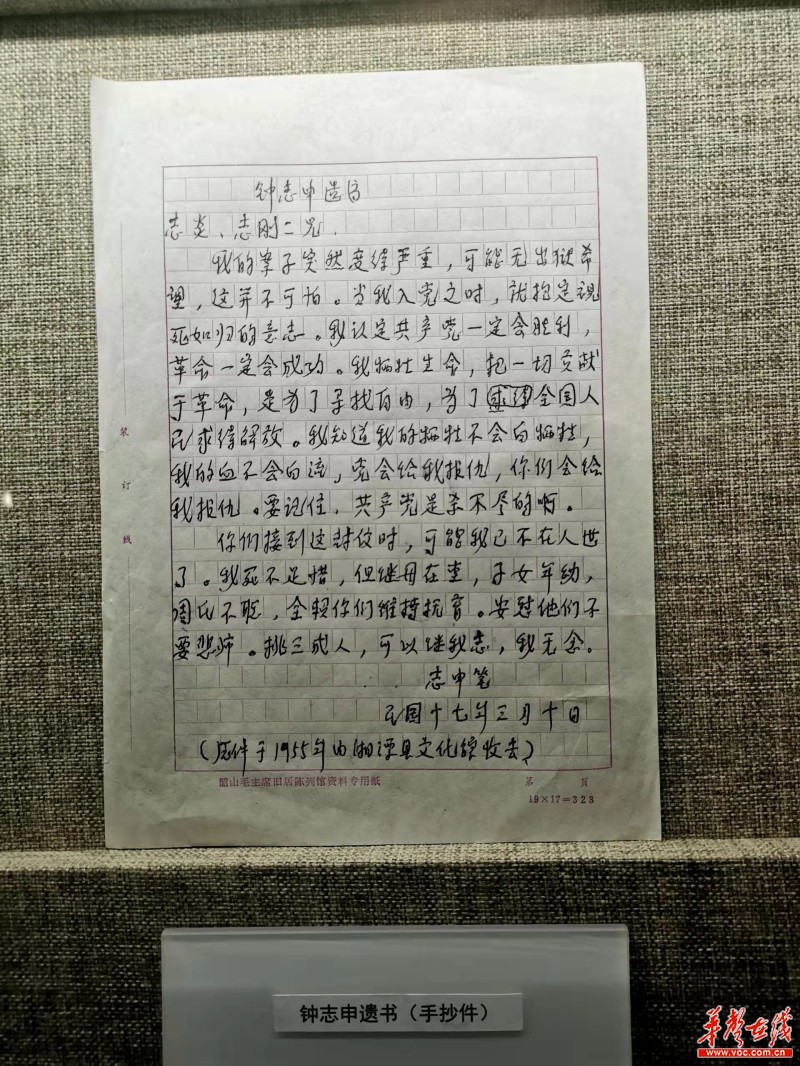 钟志申遗书
志炎、志刚二兄.
我的案子突然变得严重，可能无出狱希
望，这并不可怕。当我入党之时，就抱定视
死如归的意志。我认定共产党一定会胜利，
革命一定会成功。我牺牲生命，把一切贡献
于革命，是为了寻找自由，为了求得全国人
民求得解放。我知道我的牺牲不会白牺牲，
我的血不会白流，党会给我报仇，你们会给
我报仇。要记住，共产党是杀不尽的啊。
你们接到这封信时，可能我已不在人世
了。我死不足惜，但继母在堂，子女年幼，
周氏不聪，全赖你们维持抚育。安慰他们不
要悲师。桃三成人，可以继我志，我无念。
志申笔
民国十七年三月十日
（原件于1955年由湘潭县文化馆收去）
装
订
线
韶山毛主席旧居陈列馆资料专用纸
第 页
19×17=323
钟志申遗书（手抄件）
华声在线
www.voc.com.cn